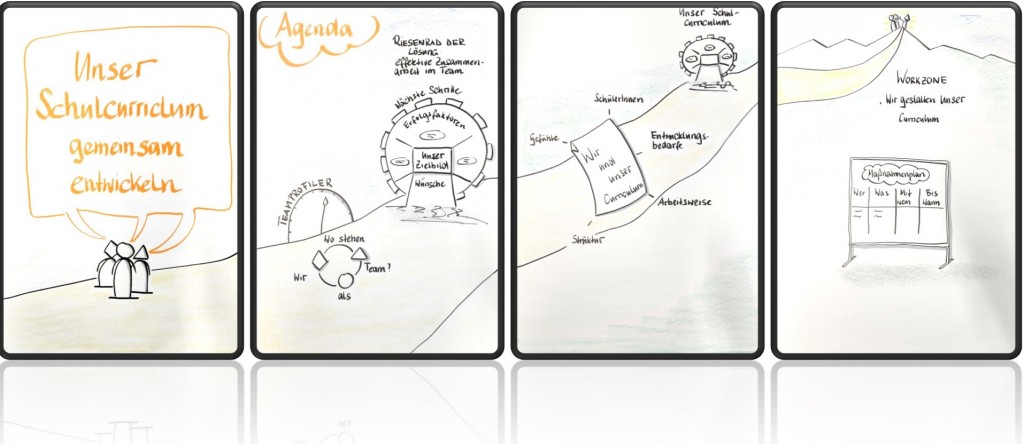 Unser
Schulcurriculum
gemeinsam
entwickeln
Agenda
RIESENRAD DER
LÖSUNG
effektive Zusammen-
arbeit im Team
Nächste Schritte
Erfolgsfaktoren
Unser
Zielbild
Wünsche
TEAMPROFILER
Wo stehen
Wir
als
Team?
Unser Schul-
Curriculum
SchülerInnen
Gefühle
Entwicklungs-
bedarfe
Wir
und
unser
Curriculum
Arbeitsweise
Struktur
WORKZONE
. Wir gestalten unser
Curriculum
Maßnahmenplan
Wer
Was
Mit
wem
Bis
Wann